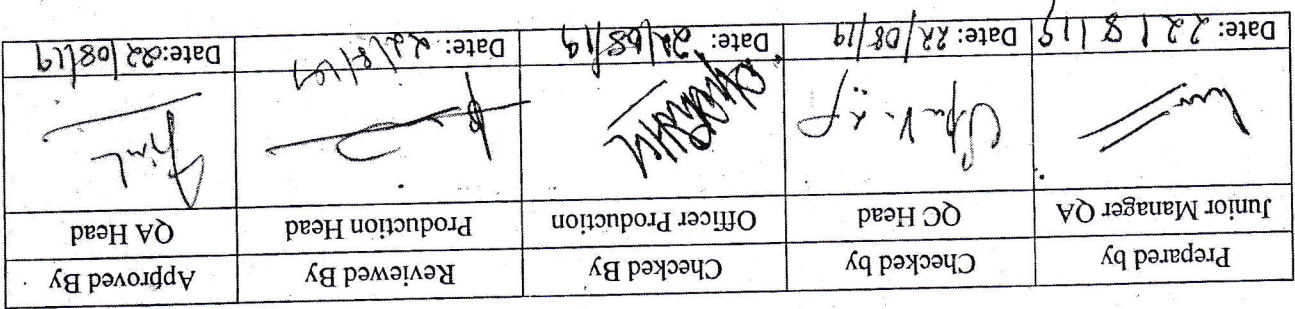 Prepared by | Checked by | Checked By | Reviewed By | Approved By
Junior Manager QA | QC Head | Officer Production | Production Head | QA Head
Date: 22/8/19 | Date: 22/08/19 | Date: 22/08/19 | Date: 22/8/19 | Date: 22/08/19